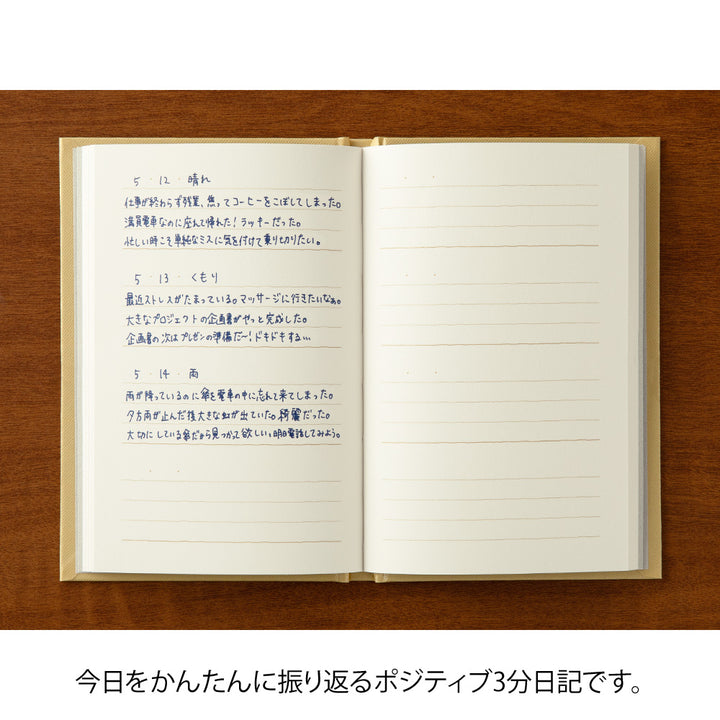 5・12・晴れ
仕事が終わらず残業、焦ってコーヒーをこぼしてしまった。
満員電車なのに座れて帰れた！ラッキーだった。
忙しい時こそ単純なミスに気を付けて乗り切りたい。
5・13・くもり
最近ストレスがたまっている。マッサージに行きたいなぁ。
大きなプロジェクトの企画書がやっと完成した。
企画書の次はプレゼンの準備だ〜！ドキドキする…
5・14・雨
雨が降っているのに傘を電車の中に忘れて来てしまった。
夕方雨が止んだ後大きな虹が出ていた。綺麗だった。
大切にしている傘だから見つかって欲しい。明日電話してみよう。
今日をかんたんに振り返るポジティブ3分日記です。